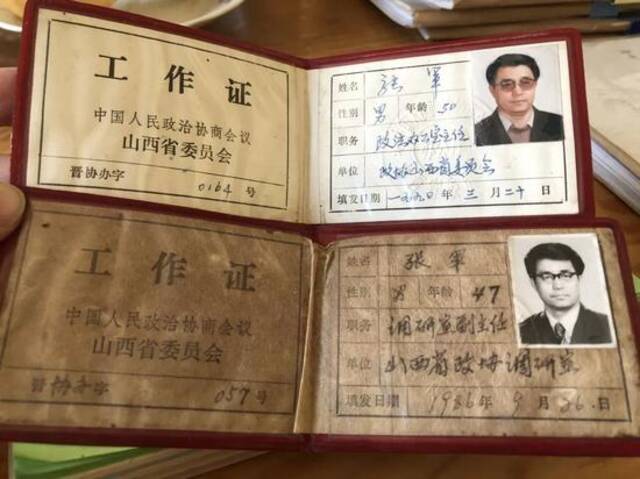 工作证
中国人民政治协商会议
山西省委员会
晋协办字 0164 号
姓名 张军
性别 男 年龄 50
职务 政法办公室主任
单位 政协山西省委员会
填发日期 一九九〇年三月二十日
工作证
中国人民政治协商会议
山西省委员会
晋协办字 057 号
姓名 张军
性别 男 年龄 47
职务 调研室副主任
单位 山西省政协调研室
填发日期 1986年9月26日